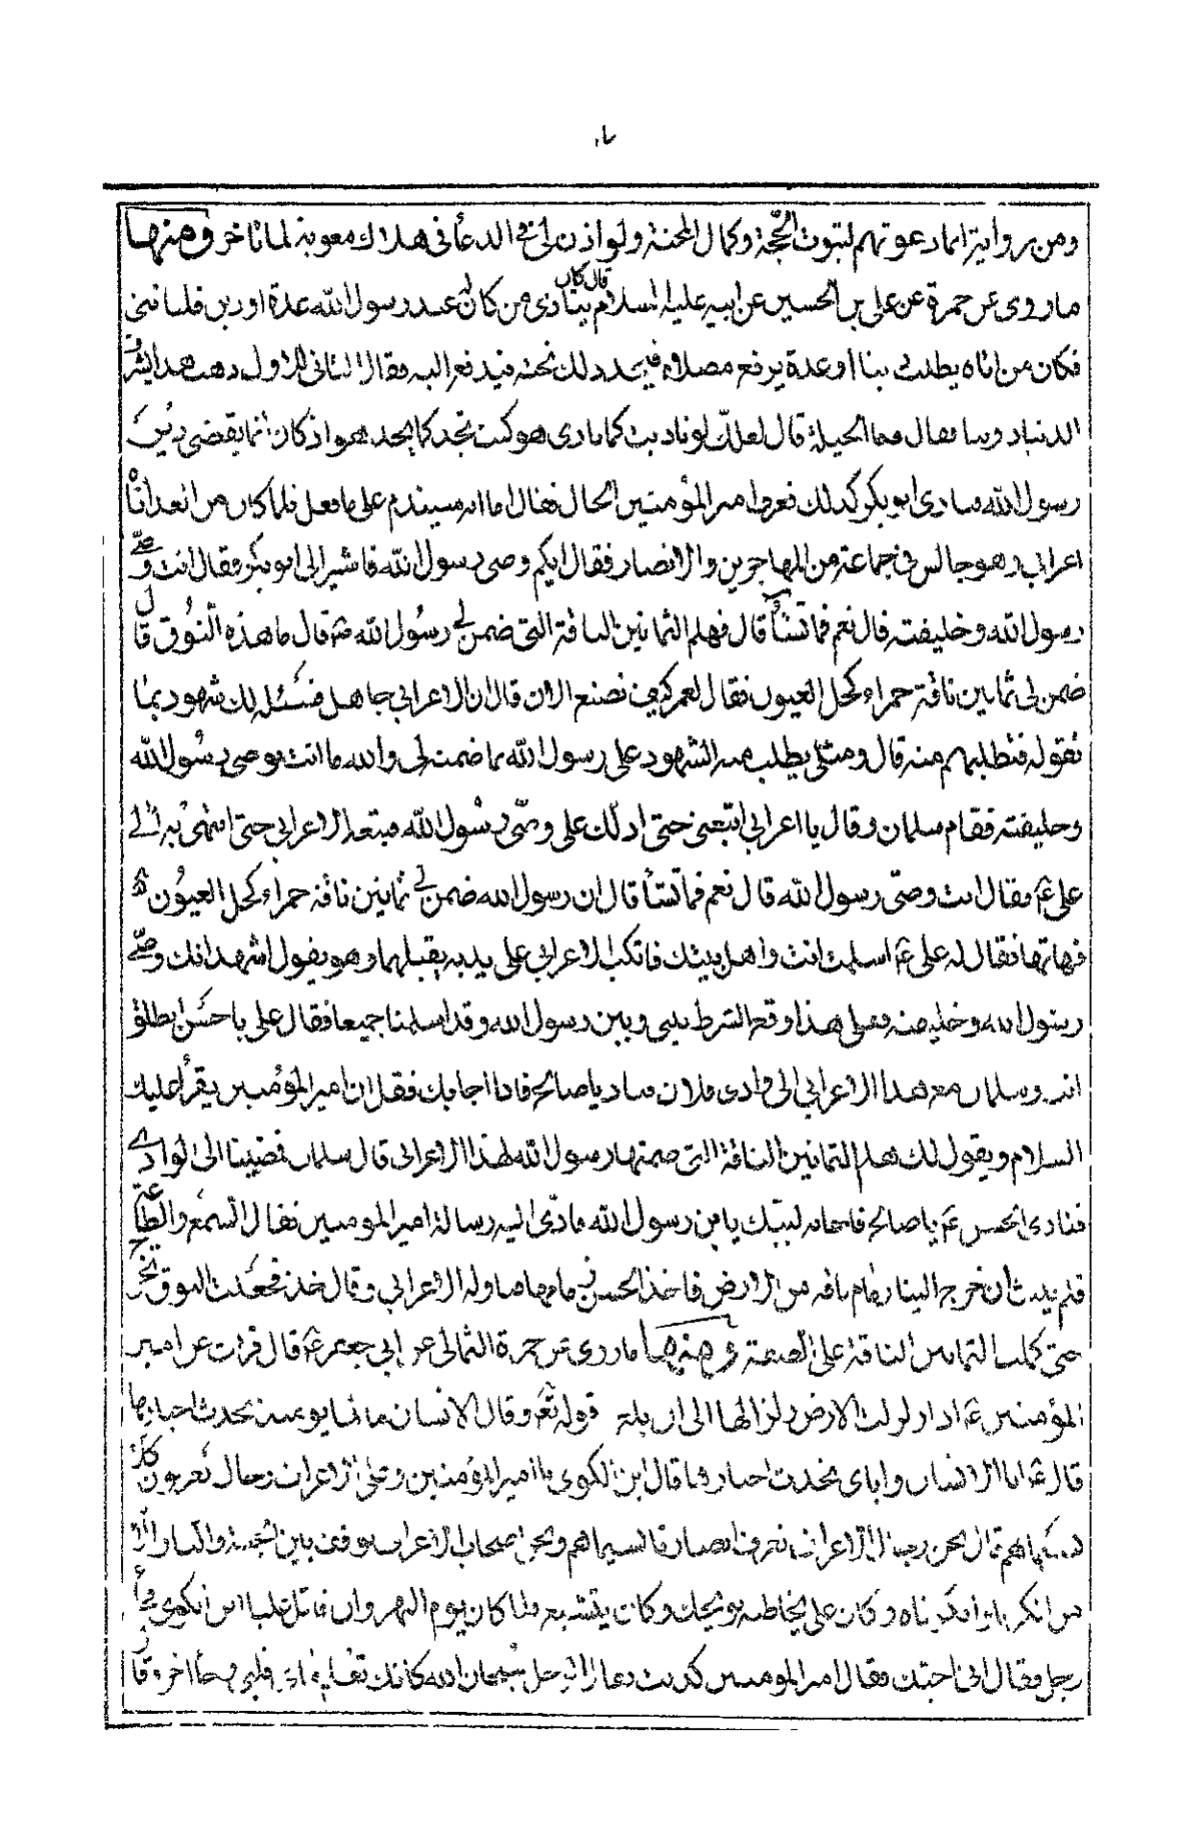 ومن رواية انما دعوتهم لثبوت الحجة وكمال المحنة ولو اذن لى فى الدعا فى هلاك معوية لما تاخر ومنها
ما روى عن حمزة عن على بن الحسين عن ابيه عليه السلام قال كان ينادى من كان له عند رسول الله عدة او دين فليأتنى
فكان من اتاه يطلب دينا او عدة يرفع مصلاه فيجد ذلك تحته فيدفعه اليه فقال الثانى للاول ذهب هذا بشرف
الدنيا دوننا فقال فما الحيلة قال لعلك لو ناديت كما نادى هو كنت تجد كما يجد هو اذ كان انما يقضى دين
رسول الله فنادى ابو بكر كذلك فعرف امير المؤمنين الحال فقال اما انه سيندم على ما فعل فلما كان من الغد اتاه
اعرابى وهو جالس فى جماعة من المهاجرين والانصار فقال ايكم وصى رسول الله فاشير الى ابو بكر فقال انت وصى
رسول الله وخليفته قال نعم فما تشأ قال فهلم الثمانين الناقة التى ضمن لى رسول الله ص قال ما هذه النوق قال
ضمن لى ثمانين ناقة حمراء كحل العيون فقال لعمر كيف نصنع الان قال ان الاعرابى جاهل فسئله لك شهود بما
تقوله فتطلبهم منه قال ومثلى يطلب منه الشهود على رسول الله بما ضمنه لى والله ما انت بوصى رسول الله
وخليفته فقام سلمان وقال يا اعرابى اتبعنى حتى ادلك على وصى رسول الله فتبعه الاعرابى حتى انتهى به الى
على ع فقال انت وصى رسول الله قال نعم فما تشأ قال ان رسول الله ضمن لى ثمانين ناقة حمراء كحل العيون
فهاتها فقال له على ع اسلمت انت واهل بيتك فانكب الاعرابى على يديه يقبلهما وهو يقول اشهد انك وصى
رسول الله وخليفته فعلى هذا وقع الشرط بينى وبين رسول الله وقد اسلمنا جميعا فقال على يا حسن انطلق
انت وسلمان مع هذا الاعرابى الى وادى فلان فناد يا صالح فاذا اجابك فقل ان امير المؤمنين يقرأ عليك
السلام ويقول لك هلم الثمانين الناقة التى ضمنها رسول الله لهذا الاعرابى قال سلمان فمضينا الى الوادى
فنادى الحسن ع يا صالح فاجابه لبيك يابن رسول الله فادى اليه رسالة امير المومنين فقال السمع والطاعة
فلم يلبث ان خرج الينا زمام ناقة من الارض فاخذ الحسن زمامها فناوله الاعرابى وقال خذ فجعلت النوق تخرج
حتى كملت الثمانين الناقة على الصفة ومنها ما روى عن حمزة الثمالى عن ابى جعفر ع قال قرات عن امير
المؤمنين ع اذا زلزلت الارض زلزالها الى ان بلغ قوله تع وقال الانسان ما لها يومئذ تحدث اخبارها
قال ع انا الانسان واياى تحدث اخبارها قال ابن الكوى يا امير المؤمنين وعلى الاعراف رجال يعرفون كلا
بسيماهم قال نحن رجال الاعراف نعرف انصارنا بسيماهم ونحن اصحاب الاعراف نوقف بين الجنة والنار الا
من انكرنا وانكرناه وكان على يخاطبه بويحك وكان يتشيع فلما كان يوم النهروان قاتل عليا ابن الكوى فجأ
رجل فقال انى احبك فقال امير المومنين كذبت فقال الرجل سبحان الله كانك تعلم ما فى قلبى وجأ اخر وقال